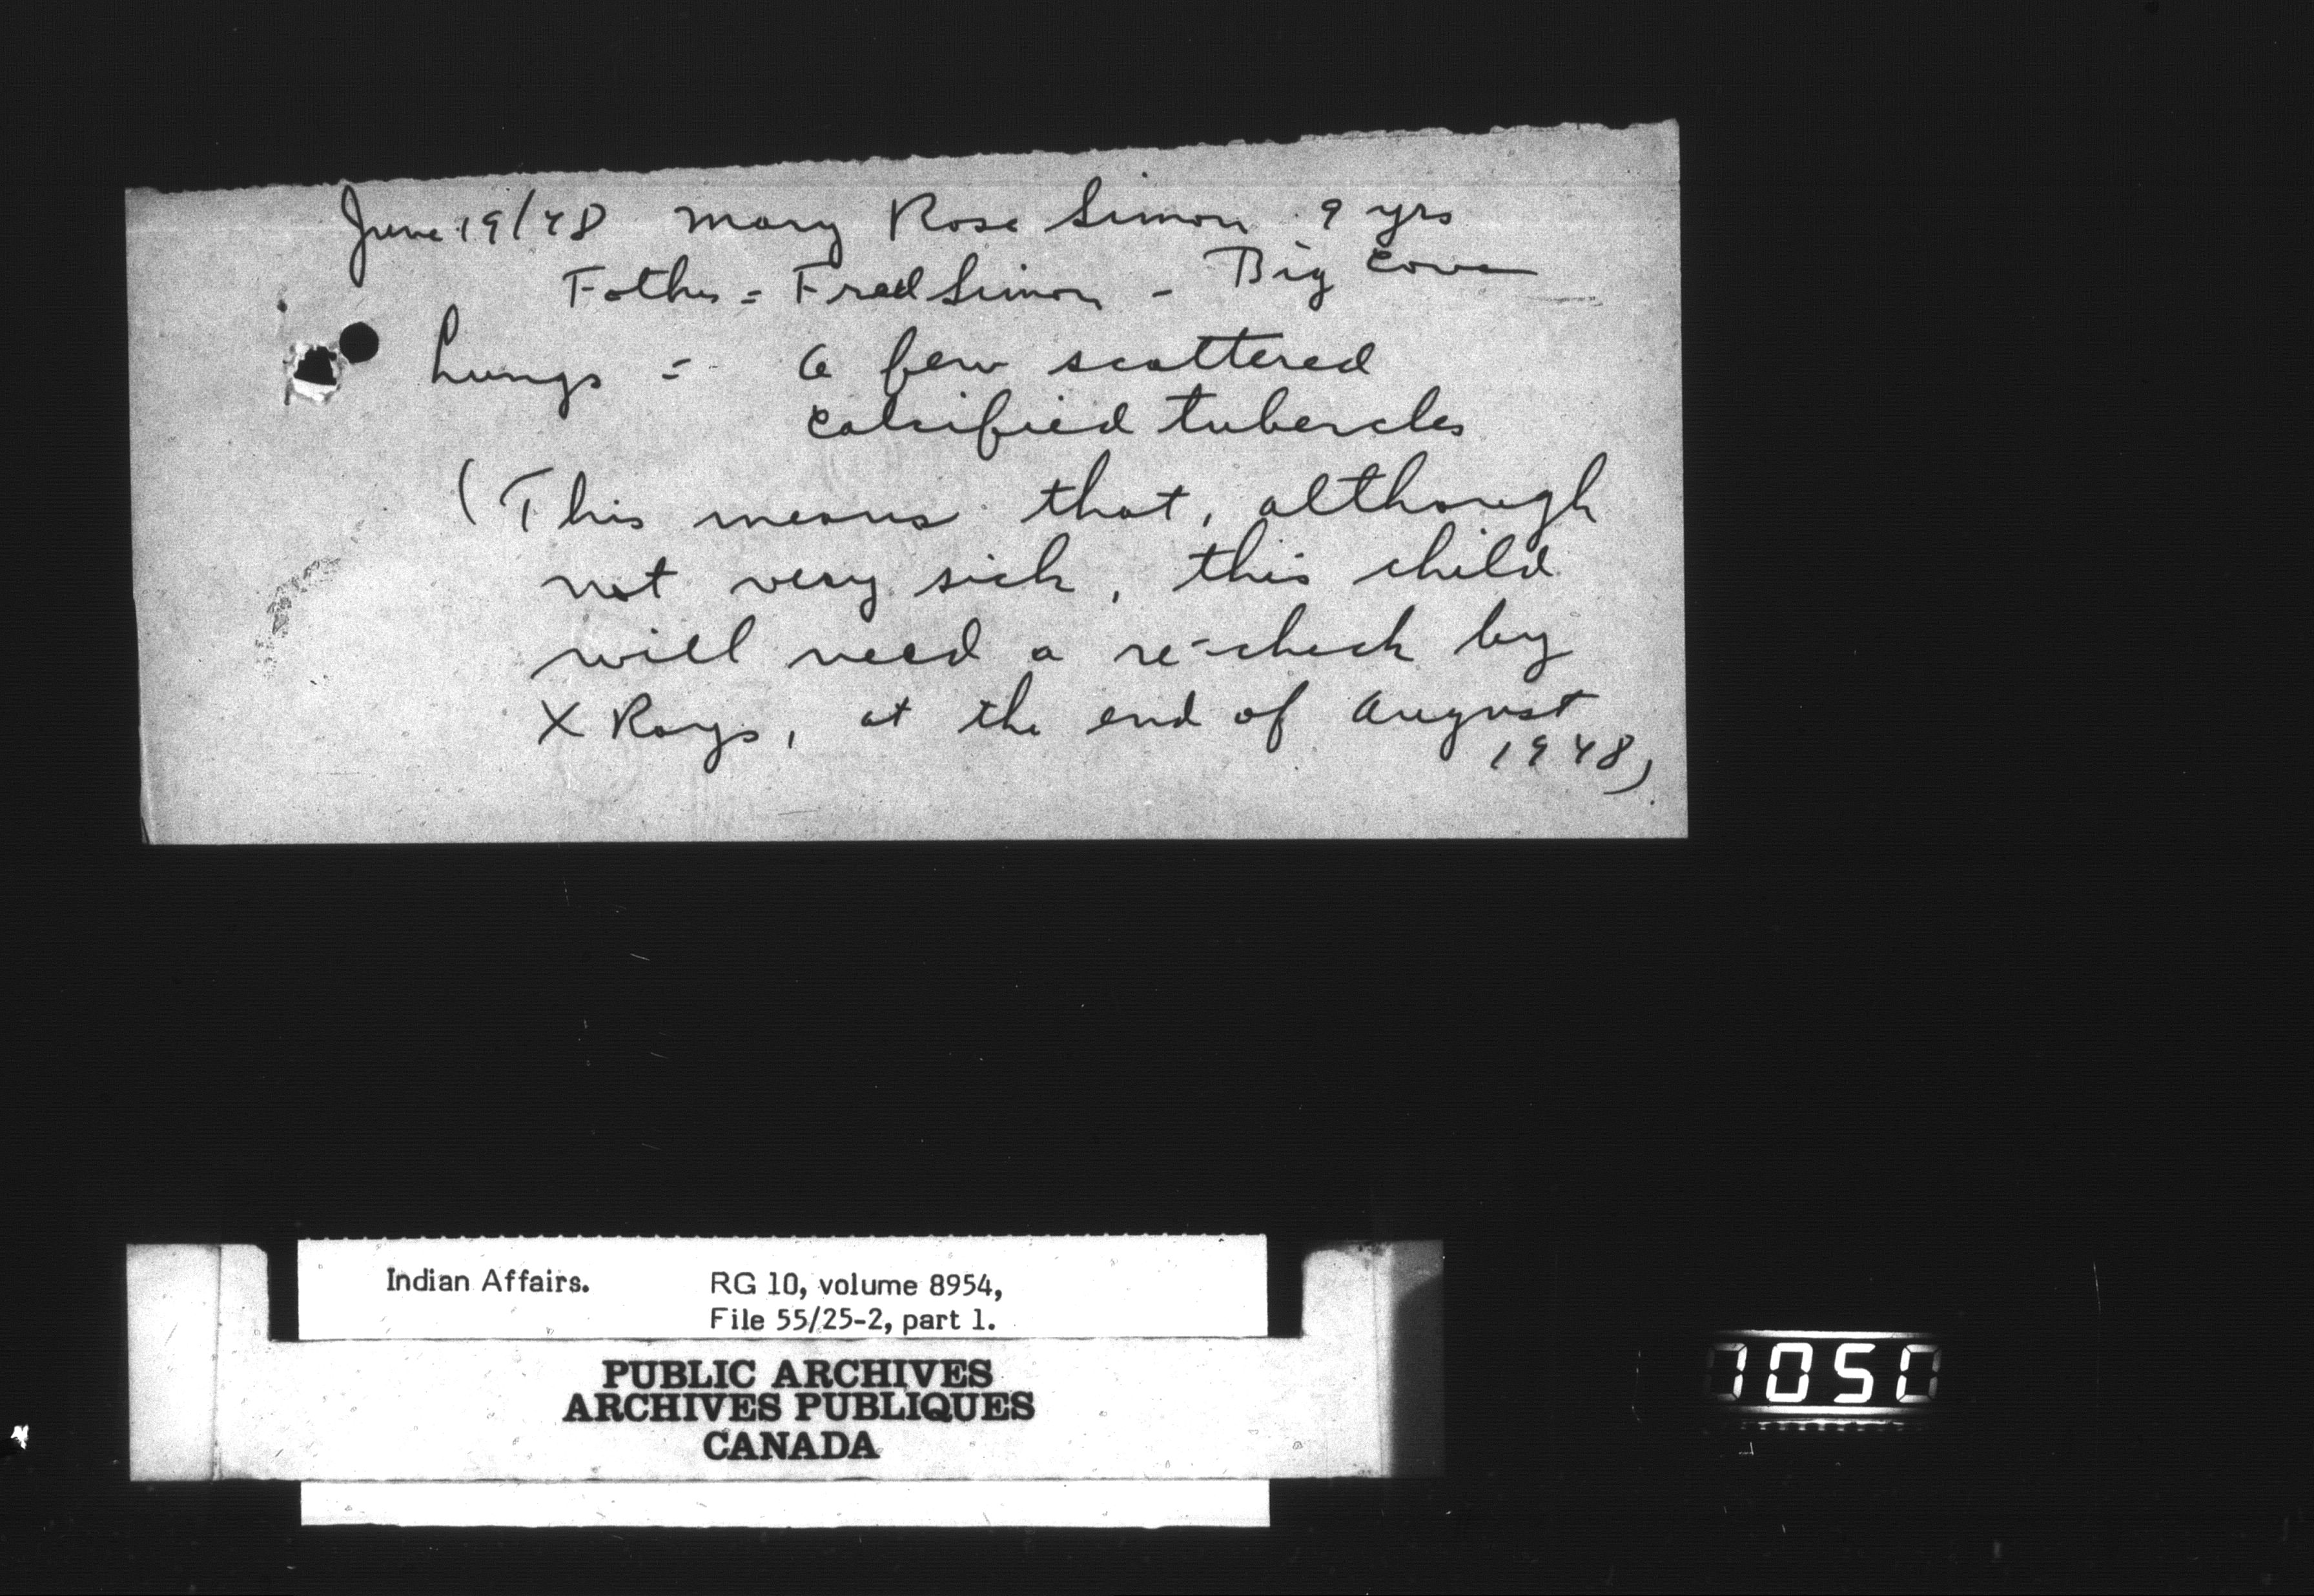 June 19/48 Mary Rose Simon 9 yrs
Father = Fred Simon - Big Cove
Lungs = a few scattered
calcified tubercles
(This means that, although
not very sick, this child
will need a re-check by
X Rays, at the end of August
1948)
Indian Affairs. RG 10, volume 8954,
File 55/25-2, part 1.
PUBLIC ARCHIVES
ARCHIVES PUBLIQUES
CANADA
1050